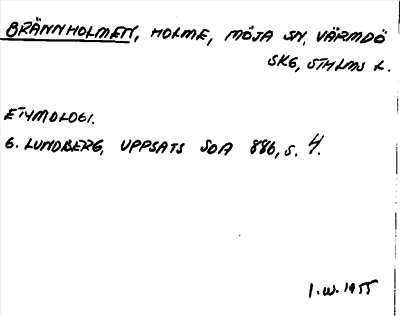 BRÄNNHOLMEN, HOLME, MÖJA SN, VÄRMDÖ
SKG, STHLMS L.
ETYMOLOGI.
G. LUNDBERG, UPPSATS SOA 886, s. 4.
I.W. 1955